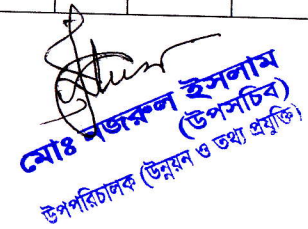 মোঃ নজরুল ইসলাম
(উপসচিব)
উপপরিচালক (উন্নয়ন ও তথ্য প্রযুক্তি)